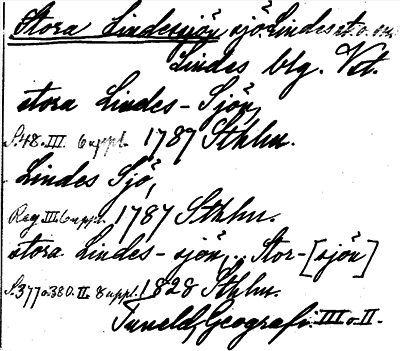 Stora Lindessjön sjö Lindes st. o. s.n.
Lindes blg. Vst.
stora Lindes-Sjön,
S. 48. III. 6 uppl. 1787 Sthlm.
Lindes Sjö,
Reg. III. 6 uppl. 1787 Sthlm.
stora Lindes-sjön,. Stor-[sjön]
S. 377 o. 380. II. 8 uppl. 1828 Sthlm.
Tuneld, Geografi. III o. II.